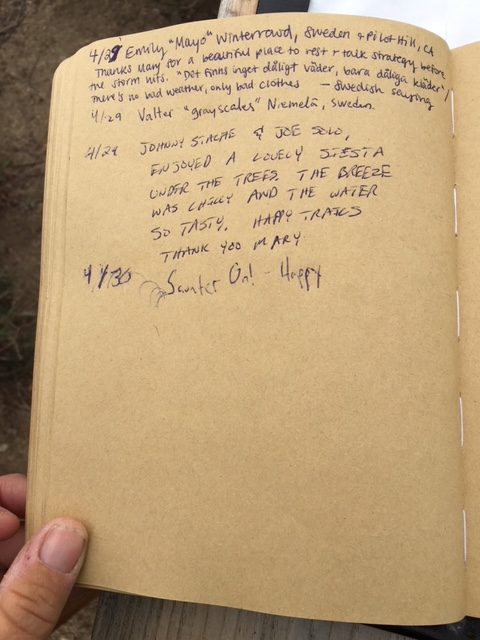 4/29 Emily "Mayo" Winterrowd, Sweden + Pilot Hill, CA
Thanks Mary for a beautiful place to rest + talk strategy before
the storm hits. "Det finns inget dåligt väder, bara dåliga kläder"/
There's no bad weather, only bad clothes - Swedish saying
4/29 Valter "grayscales" Niemelä, Sweden.
4/29 JOHNNY STACHE & JOE SOLO,
ENJOYED A LOVELY SIESTA
UNDER THE TREES. THE BREEZE
WAS CHILLY AND THE WATER
SO TASTY. HAPPY TRAILS
THANK YOU MARY.
4/30 Saunter On! - Happy